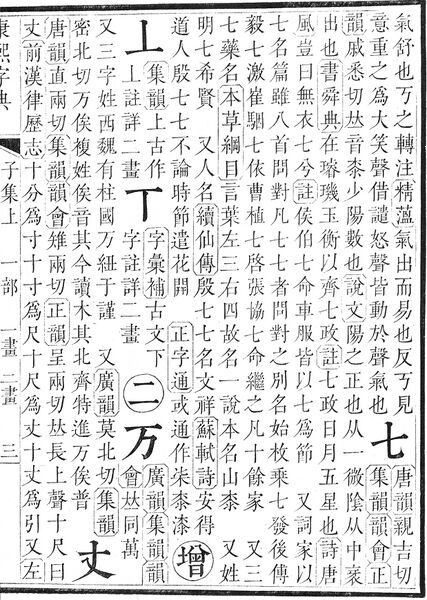 氣舒也丂之轉注精薀氣出而易也反丂見
意重之為大笑聲借譴怒聲皆動於聲氣也
七
唐韻親吉切
集韻韻會正
韻戚悉切𠀤音桼少陽數也說文陽之正也从一微陰从中衺
出也書舜典在璿璣玉衡以齊七政註七政日月五星也詩唐
風豈曰無衣七兮註侯伯七命車服皆以七為節 又詞家以
七名篇雖八首問對凡七七者問對之別名始枚乘七發後傳
毅七激崔駰七依曹植七啓張協七命繼之凡十餘家 又三
七藥名本草綱目言葉左三右四故名一說本名山桼 又姓
明七希賢 又人名續仙傳殷七七名文祥蘇軾詩安得
道人殷七七不論時節遣花開 正字通或通作柒桼漆
增
丄
集韻上古作
上註詳二畫
丅
字彙補古文下
字註詳二畫
二
万
廣韻集韻韻
會𠀤同萬
又三字姓西魏有柱國万紐于謹 又廣韻莫北切集韻
密北切万俟複姓俟音其今讀木其北齊特進万俟普
丈
唐韻直兩切集韻韻會雉兩切正韻呈兩切𠀤長上聲十尺曰
丈前漢律歷志十分為寸十寸為尺十尺為丈十丈為引又左
康熙字典 子集上 一部 一畫 二畫 三